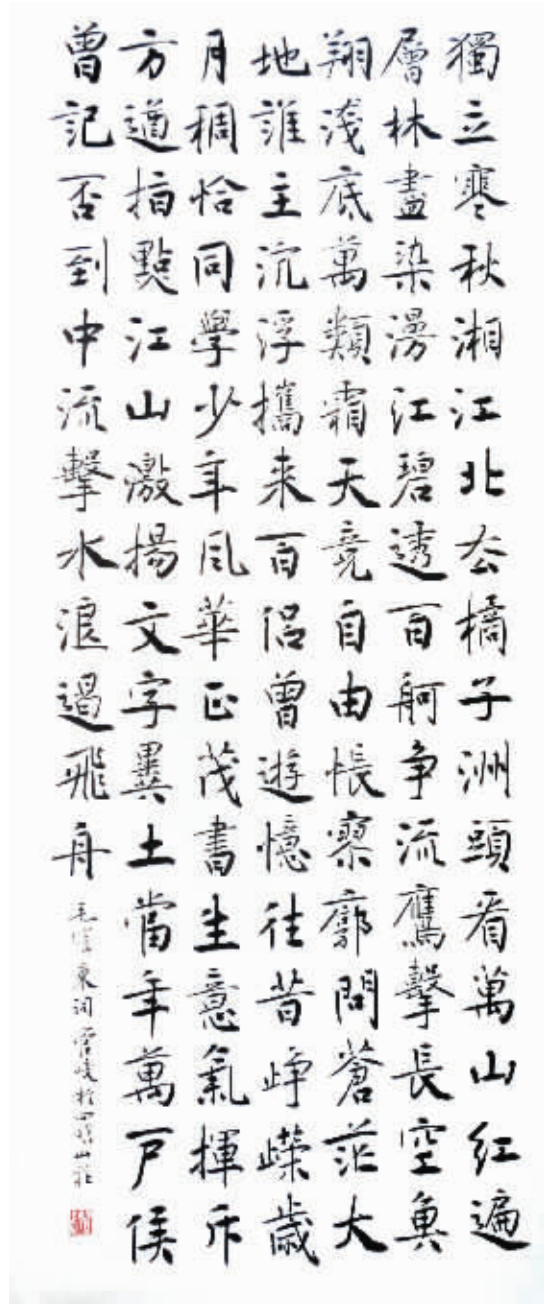 獨立寒秋湘江北去橘子洲頭看萬山紅遍
層林盡染漫江碧透百舸争流鷹擊長空魚
翔淺底萬類霜天竞自由悵寥廓問蒼茫大
地誰主沉浮攜来百侣曾遊憶往昔崢嶸歲
月稠恰同學少年風華正茂書生意氣揮斥
方遒指點江山激揚文字糞土當年萬户侯
曾記否到中流擊水浪遏飛舟
毛澤東詞管峻於